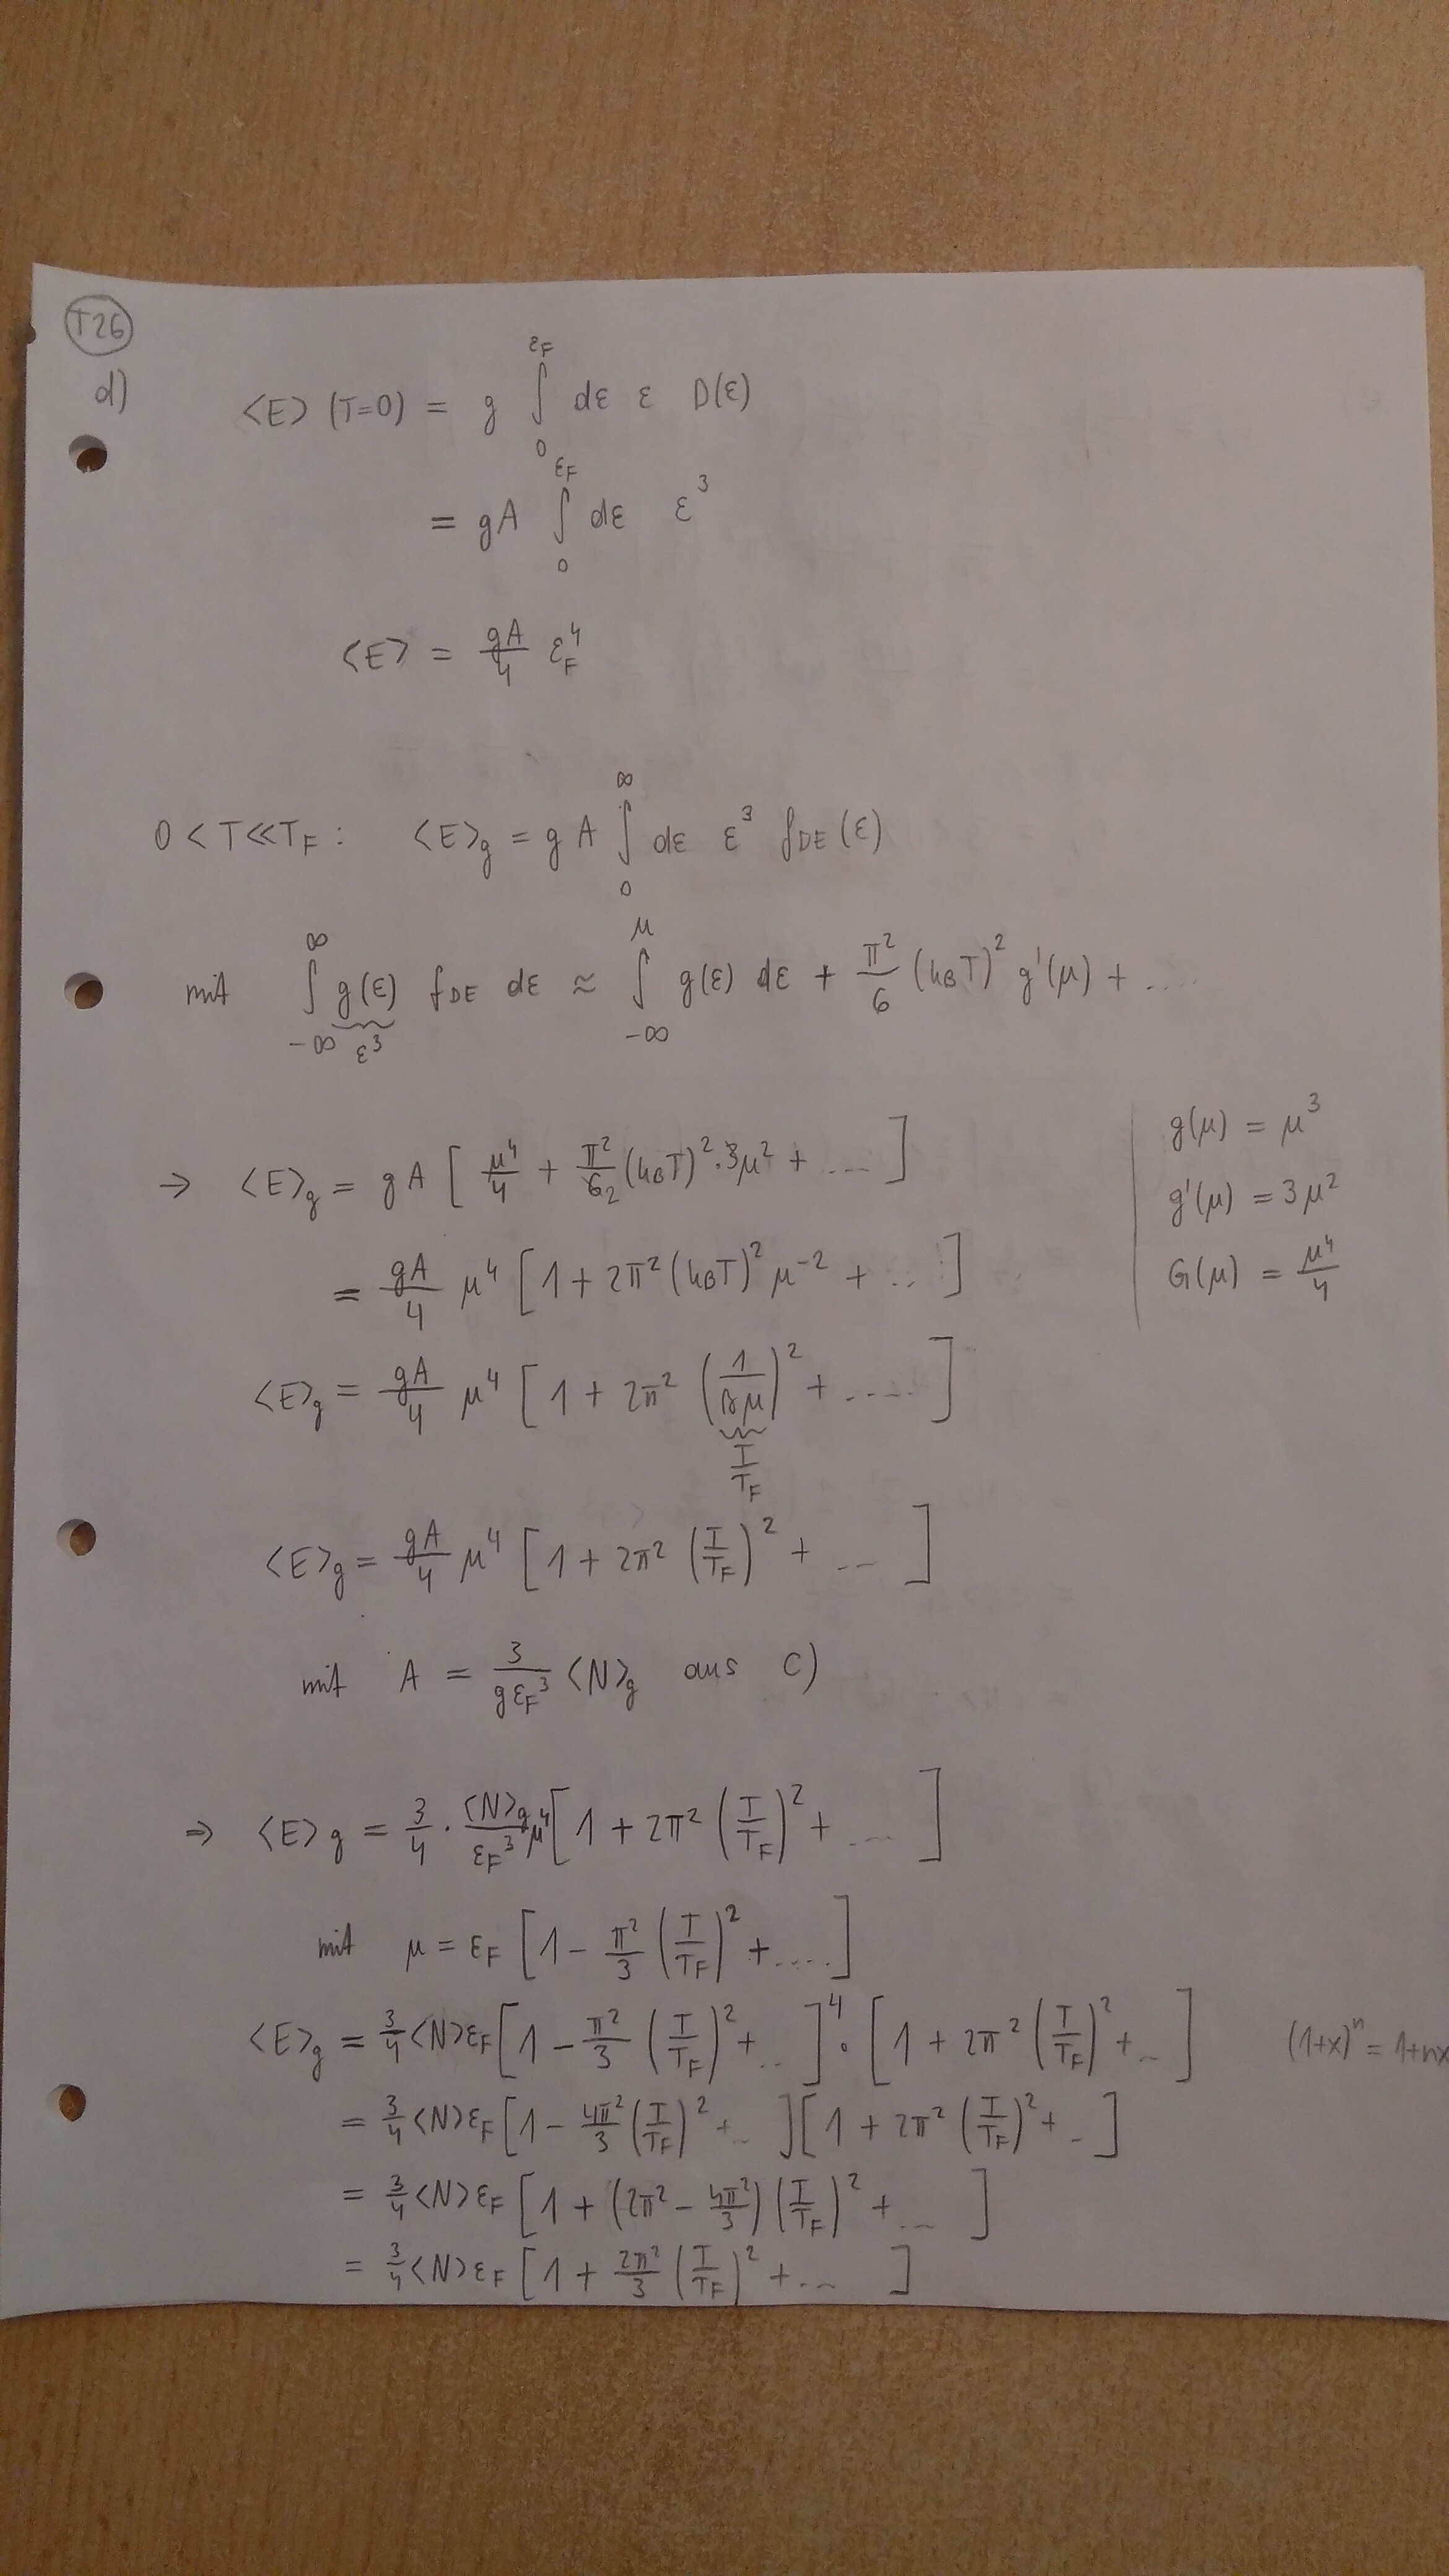 T26
d)
⟨E⟩ (T=0) = g ∫₀^{εF} dε ε D(ε)
= gA ∫₀^{εF} dε ε³
⟨E⟩ = gA/4 εF⁴
0 < T ≪ TF : ⟨E⟩g = g A ∫₀^∞ dε ε³ fDE (ε)
mit ∫_{-∞}^{∞} g(ε) fDE dε ≈ ∫_{-∞}^{μ} g(ε) dε + π²/6 (kBT)² g'(μ) + ....
ε³
→ ⟨E⟩g = g A [ μ⁴/4 + π²/6₂ (kBT)² · 3μ² + .... ]
g(μ) = μ³
g'(μ) = 3μ²
G(μ) = μ⁴/4
= gA/4 μ⁴ [ 1 + 2π² (kBT)² μ⁻² + ... ]
⟨E⟩g = gA/4 μ⁴ [ 1 + 2π² (1/βμ)² + ..... ]
T/TF
⟨E⟩g = gA/4 μ⁴ [ 1 + 2π² (T/TF)² + ... ]
mit A = 3/(gεF³) ⟨N⟩g aus c)
⇒ ⟨E⟩g = 3/4 · ⟨N⟩g/εF³ μ⁴ [ 1 + 2π² (T/TF)² + .... ]
mit μ = εF [ 1 - π²/3 (T/TF)² + ..... ]
⟨E⟩g = 3/4 ⟨N⟩εF [ 1 - π²/3 (T/TF)² + ... ]⁴ · [ 1 + 2π² (T/TF)² + .. ] (1+x)ⁿ = 1+nx
= 3/4 ⟨N⟩εF [ 1 - 4π²/3 (T/TF)² + ... ] [ 1 + 2π² (T/TF)² + .. ]
= 3/4 ⟨N⟩εF [ 1 + (2π² - 4π²/3) (T/TF)² + ... ]
= 3/4 ⟨N⟩εF [ 1 + 2π²/3 (T/TF)² + ... ]